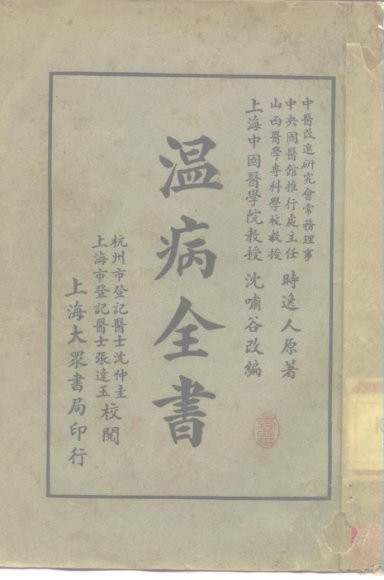 中醫改進研究會常務理事
中央國醫館推行處主任
山西醫學專科學校教授
時逸人原著
上海中國醫學院教授 沈嘯谷改編
温病全書
杭州市登記醫士沈仲圭
上海市登記醫士張達玉
校閱
上海大眾書局印行